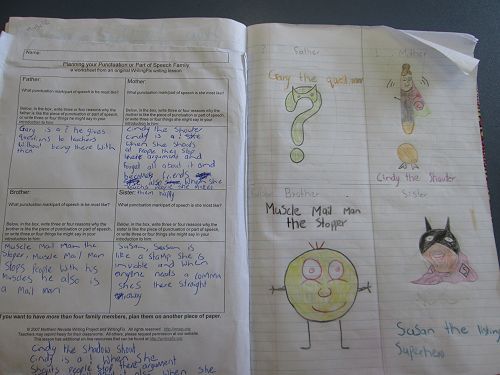 Name:
Planning your Punctuation or Part of Speech Family
a worksheet from an original WritingFix writing lesson
Father:
What punctuation mark/part of speech is he most like?
Below, in the box, write three or four reasons why the
father is like the piece of punctuation or part of speech,
or write three or four things he might say in your
introduction to him:
Gary is a ? he gives
questions to teachers
without being there with
them
Mother:
What punctuation mark/part of speech is she most like?
Below, in the box, write three or four reasons why the
mother is like the piece of punctuation or part of speech,
or write three or four things she might say in your
introduction to her:
Cindy the Shouter
Cindy is a ! She
when she shouts
at people they stop
there argument and
forget all about it and
become friends
also when she
people she makes
them happy
Brother:
What punctuation mark/part of speech is he most like?
Below, in the box, write three or four reasons why the
brother is like the piece of punctuation or part of speech,
or write three or four things he might say in your
introduction to him:
Muscle Mail Man the
Stoper, Muscle Mail Man
Stops People with his
Muscles he also is
a Mail man
Sister:
What punctuation mark/part of speech is she most like?
Below, in the box, write three or four reasons why the
sister is like the piece of punctuation or part of speech,
or write three or four things she might say in your
introduction to her:
Susan, Susan is
like a she is
and when
anyone needs a comma
she's there straight
away
If you want to have more than four family members, plan them on another piece of paper.
© 2007 Northern Nevada Writing Project and WritingFix. All rights reserved.
Cindy the Shadow Shout
Cindy is a ! When she
Shouts People stop there argument
also when she
Father
Gary the quest
?
Mother
Cindy the Shouter
Brother
Muscle Mail Man
the Stopper
Sister
Susan the listing
Superhero